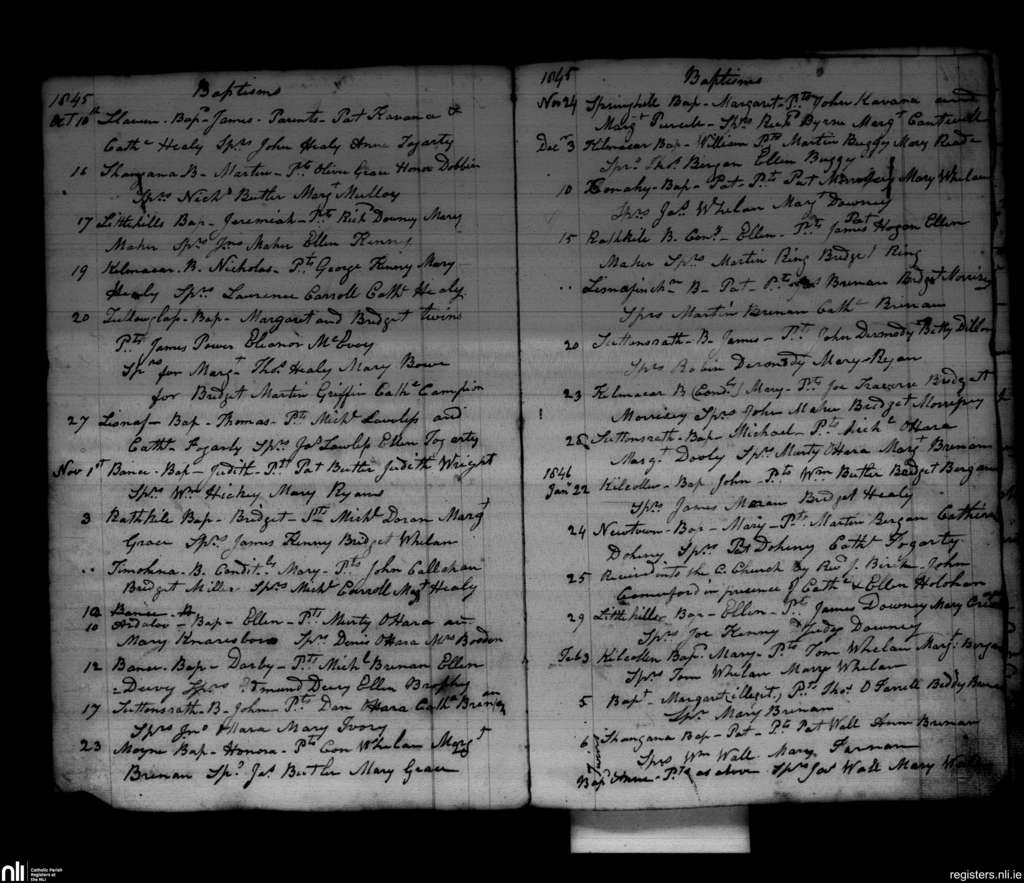 1845 Baptisms
Oct 10th Bap. James. Parents. Pat Kavana &
Cathe Healy Sprs John Healy Anne Fogarty
16 Shangana B. Martin - Pts Oliver Grace Honor Dobbin
Sprs Nichs Butler Margt Mulloy
17 Littlehills Bap. Jeremiah - Pts Richd Downey Mary
Maher Sprs Jms Maher Ellen Kenny
19 Kilmacar. B. Nicholas - Pts George Kenny Mary
Healy Sprs Laurence Carroll Cath Healy
20 Bap. Margaret and Bridget twins
Pts James Power Eleanor McEvoy
Sprs for Margt Thos Healy Mary Bowe
for Bridget Martin Griffin Cathe Campion
27 Lisnaf - Bap - Thomas - Pts Michl Lawless and
Catht Fogarty Sprs Jas Lawless Ellen Fogarty
Nov 1st Banee. Bap - Judith - Pts Pat Butler Judith Wright
Sprs Wm Hickey Mary Ryan
3 Rathkile Bap - Bridget - Pts Michl Doran Margt
Grace Sprs James Kenny Bridget Whelan
.. Timohna - B. Condit. Mary - Pts John Callahan
Bridget Miller Sprs Michl Carroll Mgt Healy
12 Banee B
10 Ardaloo - Bap - Ellen - Pts Murty OHara
Mary Knaresboro Sprs Denis OHara Mrs
12 Banee. Bap - Darby - Pts Michl Brenan Ellen
Deevy Sprs Edmund Deevy Ellen Brophy
17 Suttonsrath - B - John - Pts Dan OHara Cath Brenan
Sprs Jno OHara Mary Ivory
23 Moyne Bap - Honora - Pts Con Whelan Margt
Brenan Sprs Jas Butler Mary Grace
1845 Baptisms
Nov 24 Springhill Bap - Margaret - Pts John Kavana and
Margt Purcell - Sprs Richd Byrne Margt Cantwell
Decr 3 Kilmacar Bap - William Pts Martin Buggy Mary Reade
Sprs Thos Bergan Ellen Buggy
10 Bap - Pat - Pts Pat Mary Whelan
Sprs Jas Whelan Margt Downey
Pat
15 Rathkile B. Conl - Ellen - Pts James Hogan Ellen
Maher Sprs Martin Ring Bridget Ring
.. B - Pat - Pts Brenan Bridget Morrissy
Sprs Martin Brenan Cath Brenan
20 Suttonsrath - B - James - Pts John Dermody Betty Dillon
Sprs Robin Dermody Mary Ryan
23 Kilmacar B (Condl) Mary - Pts Joe Traverse Bridget
Morrisey Sprs John Maher Bridget Morrissey
Suttonsrath - Bap - Michael - Pts Michl OHara
Margt Dooly Sprs Murty OHara Margt Brenan
1846
Jany 22 Kilcollen - Bap John - Pts Wm Butler Bridget Bergan
Sprs James Moran Bridget Healy
24 Newtown - Bap - Mary - Pts Martin Bergan Catherine
Doheny Sprs Pat Doheny Cath Fogarty
25 Received into the C. Church by Revd J. Birch - John
Comerford in presence of Cathe & Ellen Holohan
29 Littlehills Bap - Ellen - Pts James Downey Mary
Sprs Joe Kenny & Judy Downey
Feb 3 Kilcollen Bap. Mary - Pts Tom Whelan Margt Bergan
Sprs Tom Whelan Mary Whelan
5 Bapt - Margaret illegit. Pts Thos OFarrell Biddy
Spr Mary Brenan
6 Shangana Bap - Pat - Pts Pat Wall Ann Brenan
Sprs Wm Wall Mary Farnan
Twins
Bap Anne - Pts as above Sprs Jas Wall Mary
nli Catholic Parish
Registers at
the NLI
registers.nli.ie